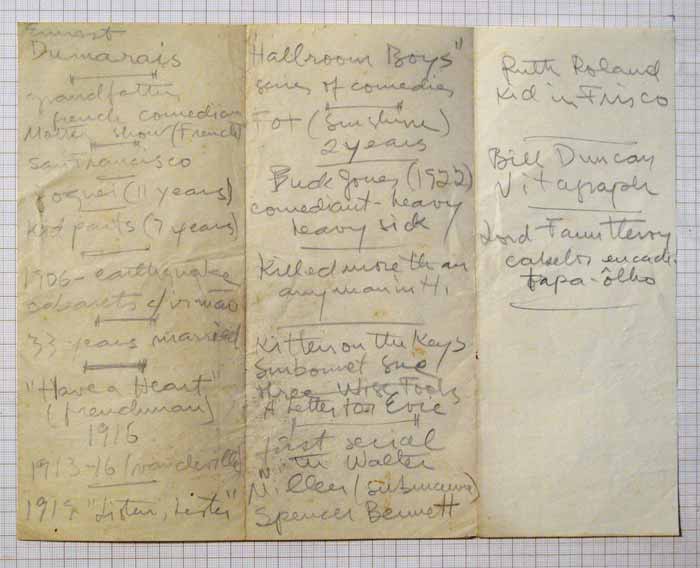 Ernest
Dumarais
grandfather
french comedian
Mother show (French)
San Francisco
(11 years)
Kid parts (7 years)
1906 - earthquake
cabarets c/irmão
33 years married
"Have a Heart"
(frenchman)
1916
1913-16 (vaudeville)
1919 "Listen, Lester"
"Hallroom Boys"
series of comedies
Fox (Sunshine)
2 years
Buck Jones (1922)
comediant - heavy
heavy sick
Killed more than
any man in H.
Kitten on the Keys
Sunbonnet Sue
three Wise Fools
A Letter for Evie
first serial
with Walter
Miller (submarine)
Spencer Bennett
Ruth Roland
Kid in Frisco
Bill Duncan
Vitagraph
Lord Fauntleroy
cabelos
tapa-ôlho